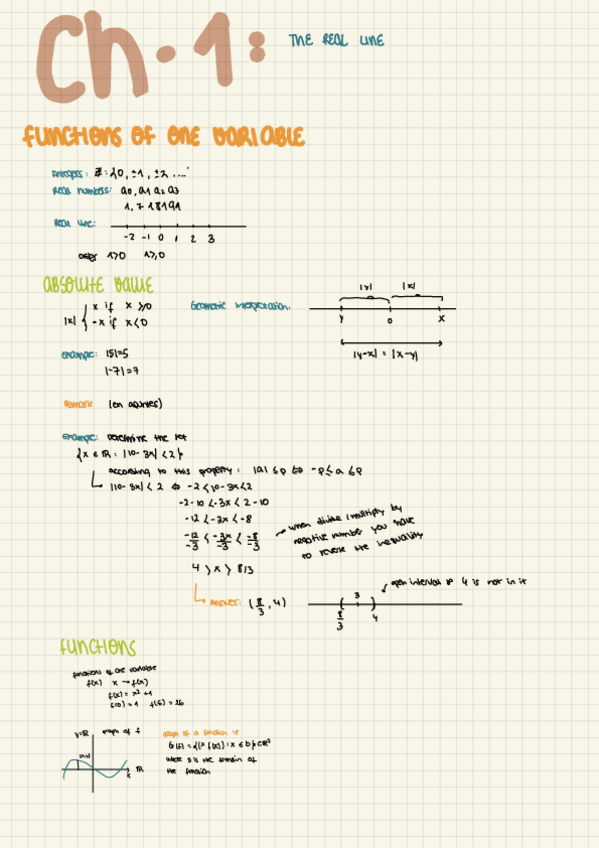 Ch.1:
THE REAL LINE
FUNCTIONS OF ONE VARIABLE
integers: Z:{0, ±1, ±2 ....
Real numbers: a0, a1 a2 a3
1,7 18191
Real line:
-2 -1 0 1 2 3
order 1>0 1≥0
ABSOLUTE VALUE
|x| { x if x ≥0
-x if x<0
Geometric interpretation:
|y| |x|
y 0 x
|y-x| = |x-y|
example: |5|=5
|-7|=7
Remark (en apuntes)
example: determine the set
{x ∈ R: |10-3x| < 2}
according to this property: |a| ≤ p ⇔ -p ≤ a ≤ p
|10-3x| < 2 ⇔ -2 < 10-3x < 2
-2-10 < -3x < 2-10
-12 < -3x < -8
-12/-3 < -3x/-3 < -8/-3
when divide / multiply by
negative number you have
to reverse the inequality
4 > x > 8/3
Answer: (8/3, 4)
open interval so 4 is not in it
3
8/3 4
FUNCTIONS
functions of one variable
f(x) x → f(x)
f(x) = x² + 1
f(0) = 1 f(5) = 26
y=R graph of f
R
x
graph of a function is
G(f) = {(x, f(x)) : x ∈ D} ⊂ R²
where D is the domain of
the function